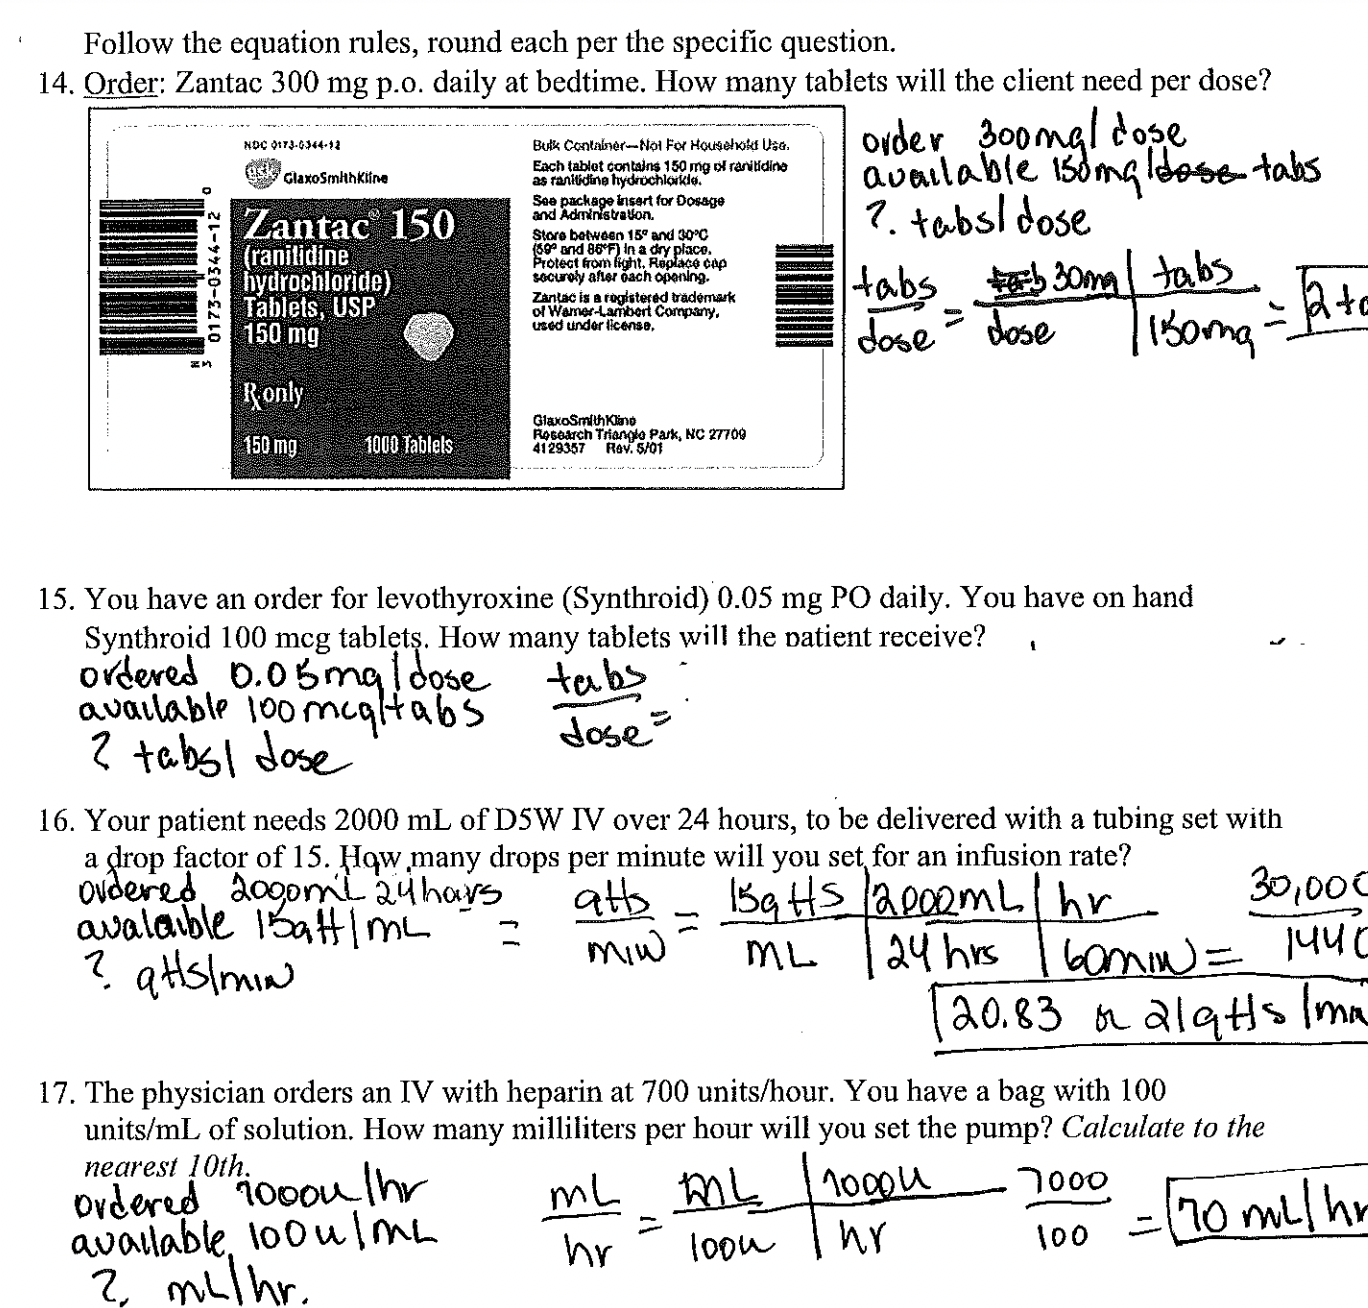 Follow the equation rules, round each per the specific question.
14. Order: Zantac 300 mg p.o. daily at bedtime. How many tablets will the client need per dose?
NDC 0173-0344-12
GlaxoSmithKline
Zantac® 150
(ranitidine
hydrochloride)
Tablets, USP
150 mg
Rx only
150 mg 1000 Tablets
0173-0344-12
Bulk Container—Not For Household Use.
Each tablet contains 150 mg of ranitidine
as ranitidine hydrochloride.
See package insert for Dosage
and Administration.
Store between 15° and 30°C
(59° and 86°F) in a dry place.
Protect from light. Replace cap
securely after each opening.
Zantac is a registered trademark
of Warner-Lambert Company,
used under license.
GlaxoSmithKline
Research Triangle Park, NC 27709
4129357 Rev. 5/01
order 300mg/dose
available 150mg/dose tabs
? tabs/dose
tabs/dose = 30mg/dose | tabs/150mg = 2 ta
15. You have an order for levothyroxine (Synthroid) 0.05 mg PO daily. You have on hand
Synthroid 100 mcg tablets. How many tablets will the patient receive?
ordered 0.05mg/dose
available 100mcg/tabs
? tabs/dose
tabs/dose =
16. Your patient needs 2000 mL of D5W IV over 24 hours, to be delivered with a tubing set with
a drop factor of 15. How many drops per minute will you set for an infusion rate?
ordered 2000mL 24hours
avalaible 15gtt/mL
? gtts/min
= gtts/min = 15gtts/mL | 2000mL/24hrs | hr/60min = 30,000/1440
20.83 or 21gtts/min
17. The physician orders an IV with heparin at 700 units/hour. You have a bag with 100
units/mL of solution. How many milliliters per hour will you set the pump? Calculate to the
nearest 10th.
ordered 7000u/hr
available 100u/mL
?. mL/hr.
mL/hr = mL/100u | 7000u/hr 7000/100 = 70 mL/hr